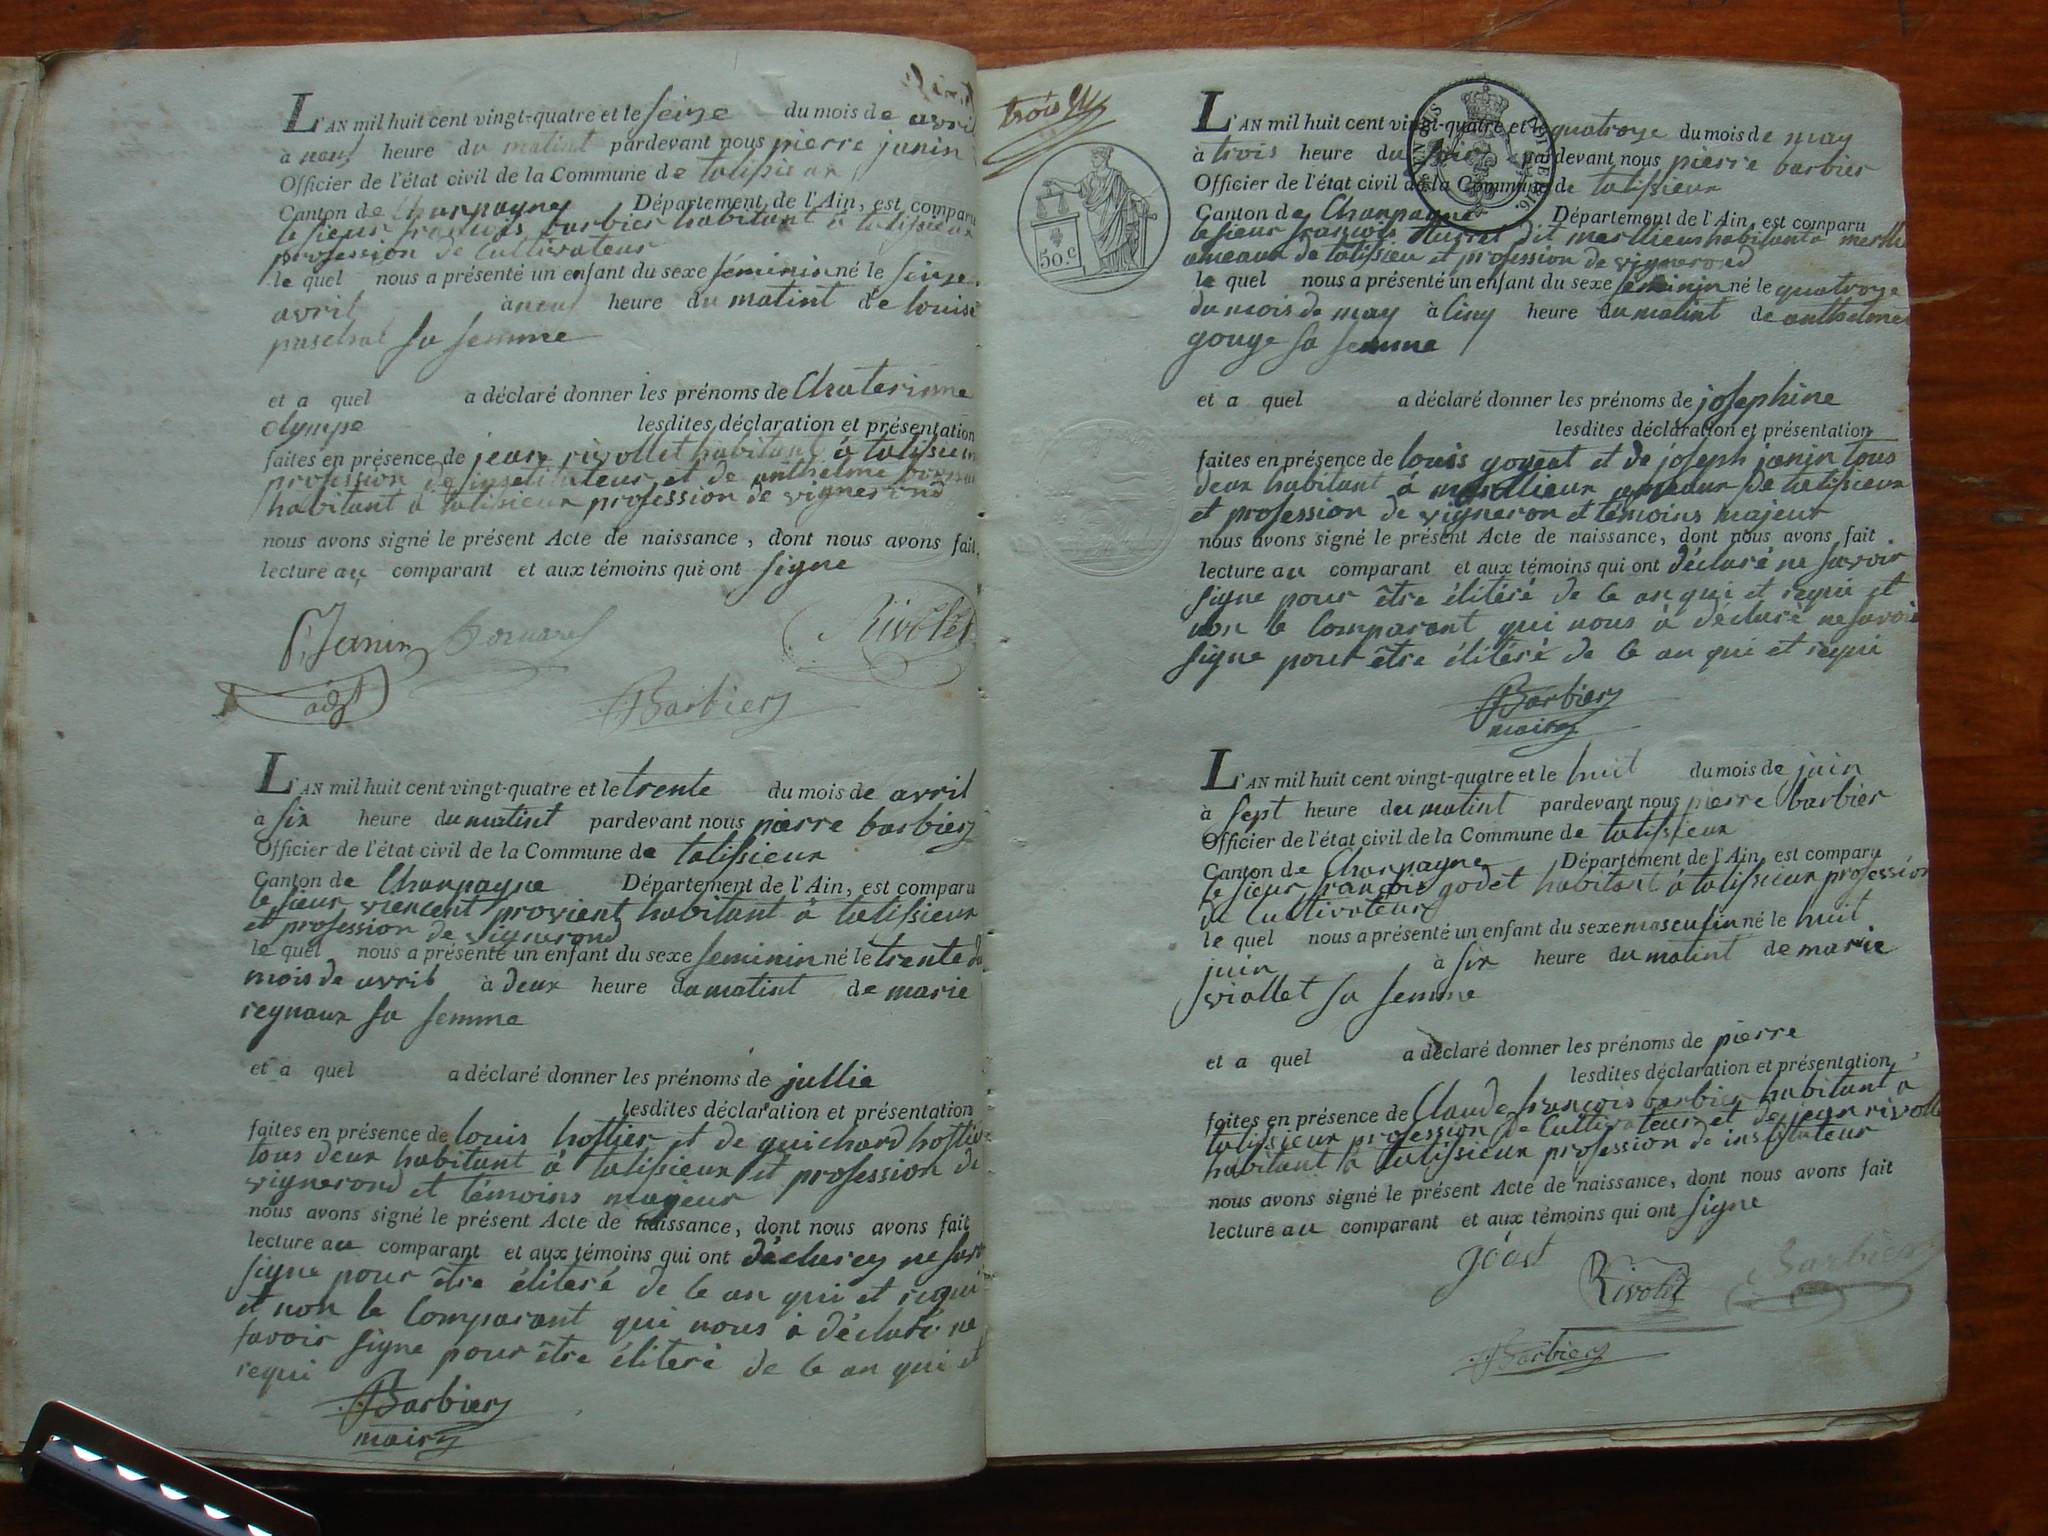 L'AN mil huit cent vingt-quatre et le seize du mois de avril
à neuf heure du matint pardevant nous pierre janin
Officier de l'état civil de la Commune de talissieux
Canton de Champagne Département de l'Ain, est comparu
le sieur françois barbier habitant à talissieux
profession de Cultivateur
le quel nous a présenté un enfant du sexe séminin né le seize
avril à neuf heure du matint de louise
paschal sa femme
et a quel a déclaré donner les prénoms de Chaterinne
olympe lesdites déclaration et présentation
faites en présence de jean rivollet habitant à talissieux
profession de instituteur et de anthelme
habitant à talissieux profession de vignerond
nous avons signé le présent Acte de naissance, dont nous avons fait
lecture au comparant et aux témoins qui ont signe
P. Janin Rivolet
adjt
Barbier
L'AN mil huit cent vingt-quatre et le trente du mois de avril
à six heure du matint pardevant nous pierre barbier
Officier de l'état civil de la Commune de talissieux
Canton de Champagne Département de l'Ain, est comparu
le sieur viencent provient habitant à talissieux
et profession de vignerond
le quel nous a présenté un enfant du sexe feminin né le trente du
mois de avril à deux heure du matint de marie
reynaux sa femme
et a quel a déclaré donner les prénoms de jullie
lesdites déclaration et présentation
faites en présence de louis hostier et de guichard hostier
tous deux habitant à talissieux et profession de
vignerond et témoins majeur
nous avons signé le présent Acte de naissance, dont nous avons fait
lecture au comparant et aux témoins qui ont déclarez ne savoir
signe pour être éliteré de ce an qui et requi
et non le Comparant qui nous à déclaré ne
savoir signe pour être éliteré de ce an qui et
requi
Barbier
maire
trois
50.c
L'AN mil huit cent vingt-quatre et le quatroze du mois de may
à trois heure du soir pardevant nous pierre barbier
Officier de l'état civil de la Commune de talissieux
Canton de Champagne Département de l'Ain, est comparu
le sieur françois dit merllieux habitant à
ameaux de talissieu et profession de vignerond
le quel nous a présenté un enfant du sexe féminin né le quatroze
du mois de may à Cinq heure du matint de anthelmes
gouge sa femme
et a quel a déclaré donner les prénoms de josephine
lesdites déclaration et présentation
faites en présence de louis goyent et de joseph janin tous
deux habitant à merllieux ameaux de talissieux
et profession de vigneron et témoins majeur
nous avons signé le présent Acte de naissance, dont nous avons fait
lecture au comparant et aux témoins qui ont déclaré ne savoir
signe pour être élitéré de ce an qui et requi et
non le Comparant qui nous à déclaré ne savoir
signe pour être élitéré de ce an qui et requi
Barbier
maire
L'AN mil huit cent vingt-quatre et le huit du mois de juin
à sept heure du matint pardevant nous pierre barbier
Officier de l'état civil de la Commune de talissieux
Canton de Champagne Département de l'Ain, est comparu
le sieur françois godet habitant à talissieux profession
de Cultivateur
le quel nous a présenté un enfant du sexe masculin né le huit
juin à six heure du matint de marie
viollet sa femme
et a quel a déclaré donner les prénoms de pierre
lesdites déclaration et présentation
faites en présence de Claude françois barbier habitant à
talissieux profession de Cultivateur et de jean rivollet
habitant à talissieux profession de instituteur
nous avons signé le présent Acte de naissance, dont nous avons fait
lecture au comparant et aux témoins qui ont signe
Rivolet Barbier
Barbier